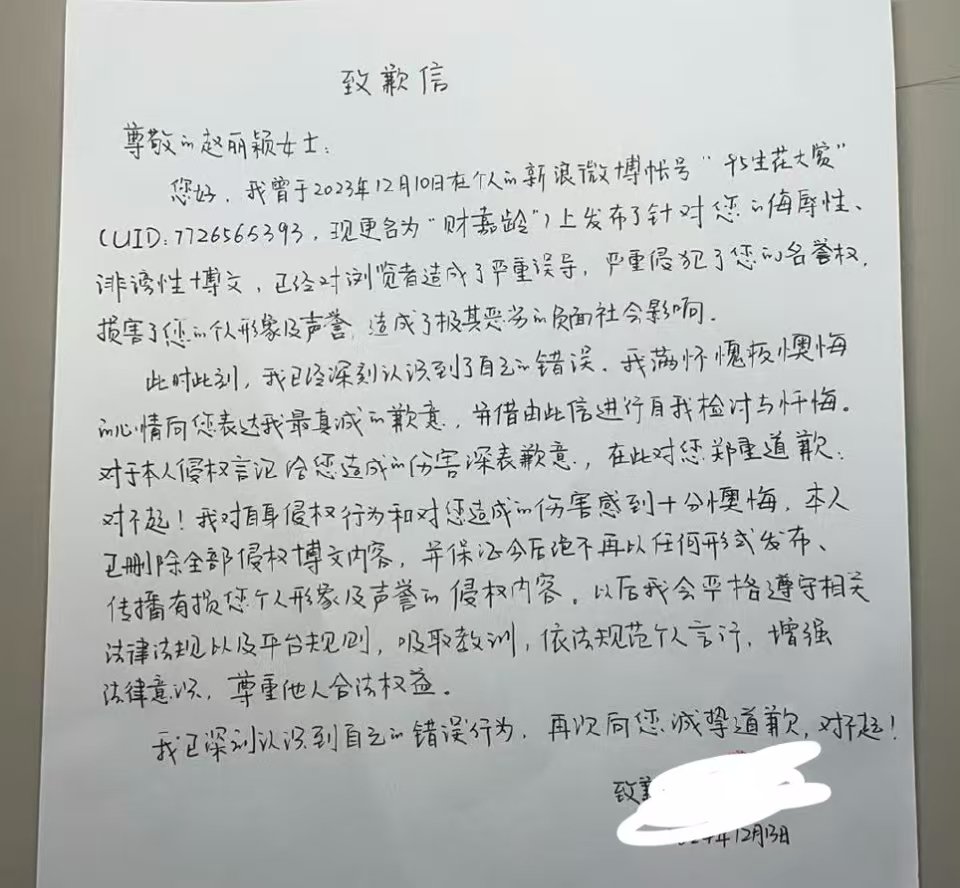 致歉信
尊敬的赵丽颖女士：
您好，我曾于2023年12月10日在个人的新浪微博帐号“生花大赏”
（UID:7726565393，现更名为“财嘉龄”）上发布了针对您的侮辱性、
诽谤性博文，已经对浏览者造成了严重误导，严重侵犯了您的名誉权，
损害了您的个人形象及声誉，造成了极其恶劣的负面社会影响。
此时此刻，我已经深刻认识到了自己的错误。我满怀愧疚懊悔
的心情向您表达我最真诚的歉意，并借由此信进行自我检讨与忏悔。
对于本人侵权言论给您造成的伤害深表歉意，在此对您郑重道歉：
对不起！我对自身侵权行为和对您造成的伤害感到十分懊悔，本人
已删除全部侵权博文内容，并保证今后绝不再以任何形式发布、
传播有损您个人形象及声誉的侵权内容。以后我会严格遵守相关
法律法规以及平台规则，吸取教训，依法规范个人言行，增强
法律意识，尊重他人合法权益。
我已深刻认识到自己的错误行为，再次向您诚挚道歉，对不起！
致歉
年12月13日